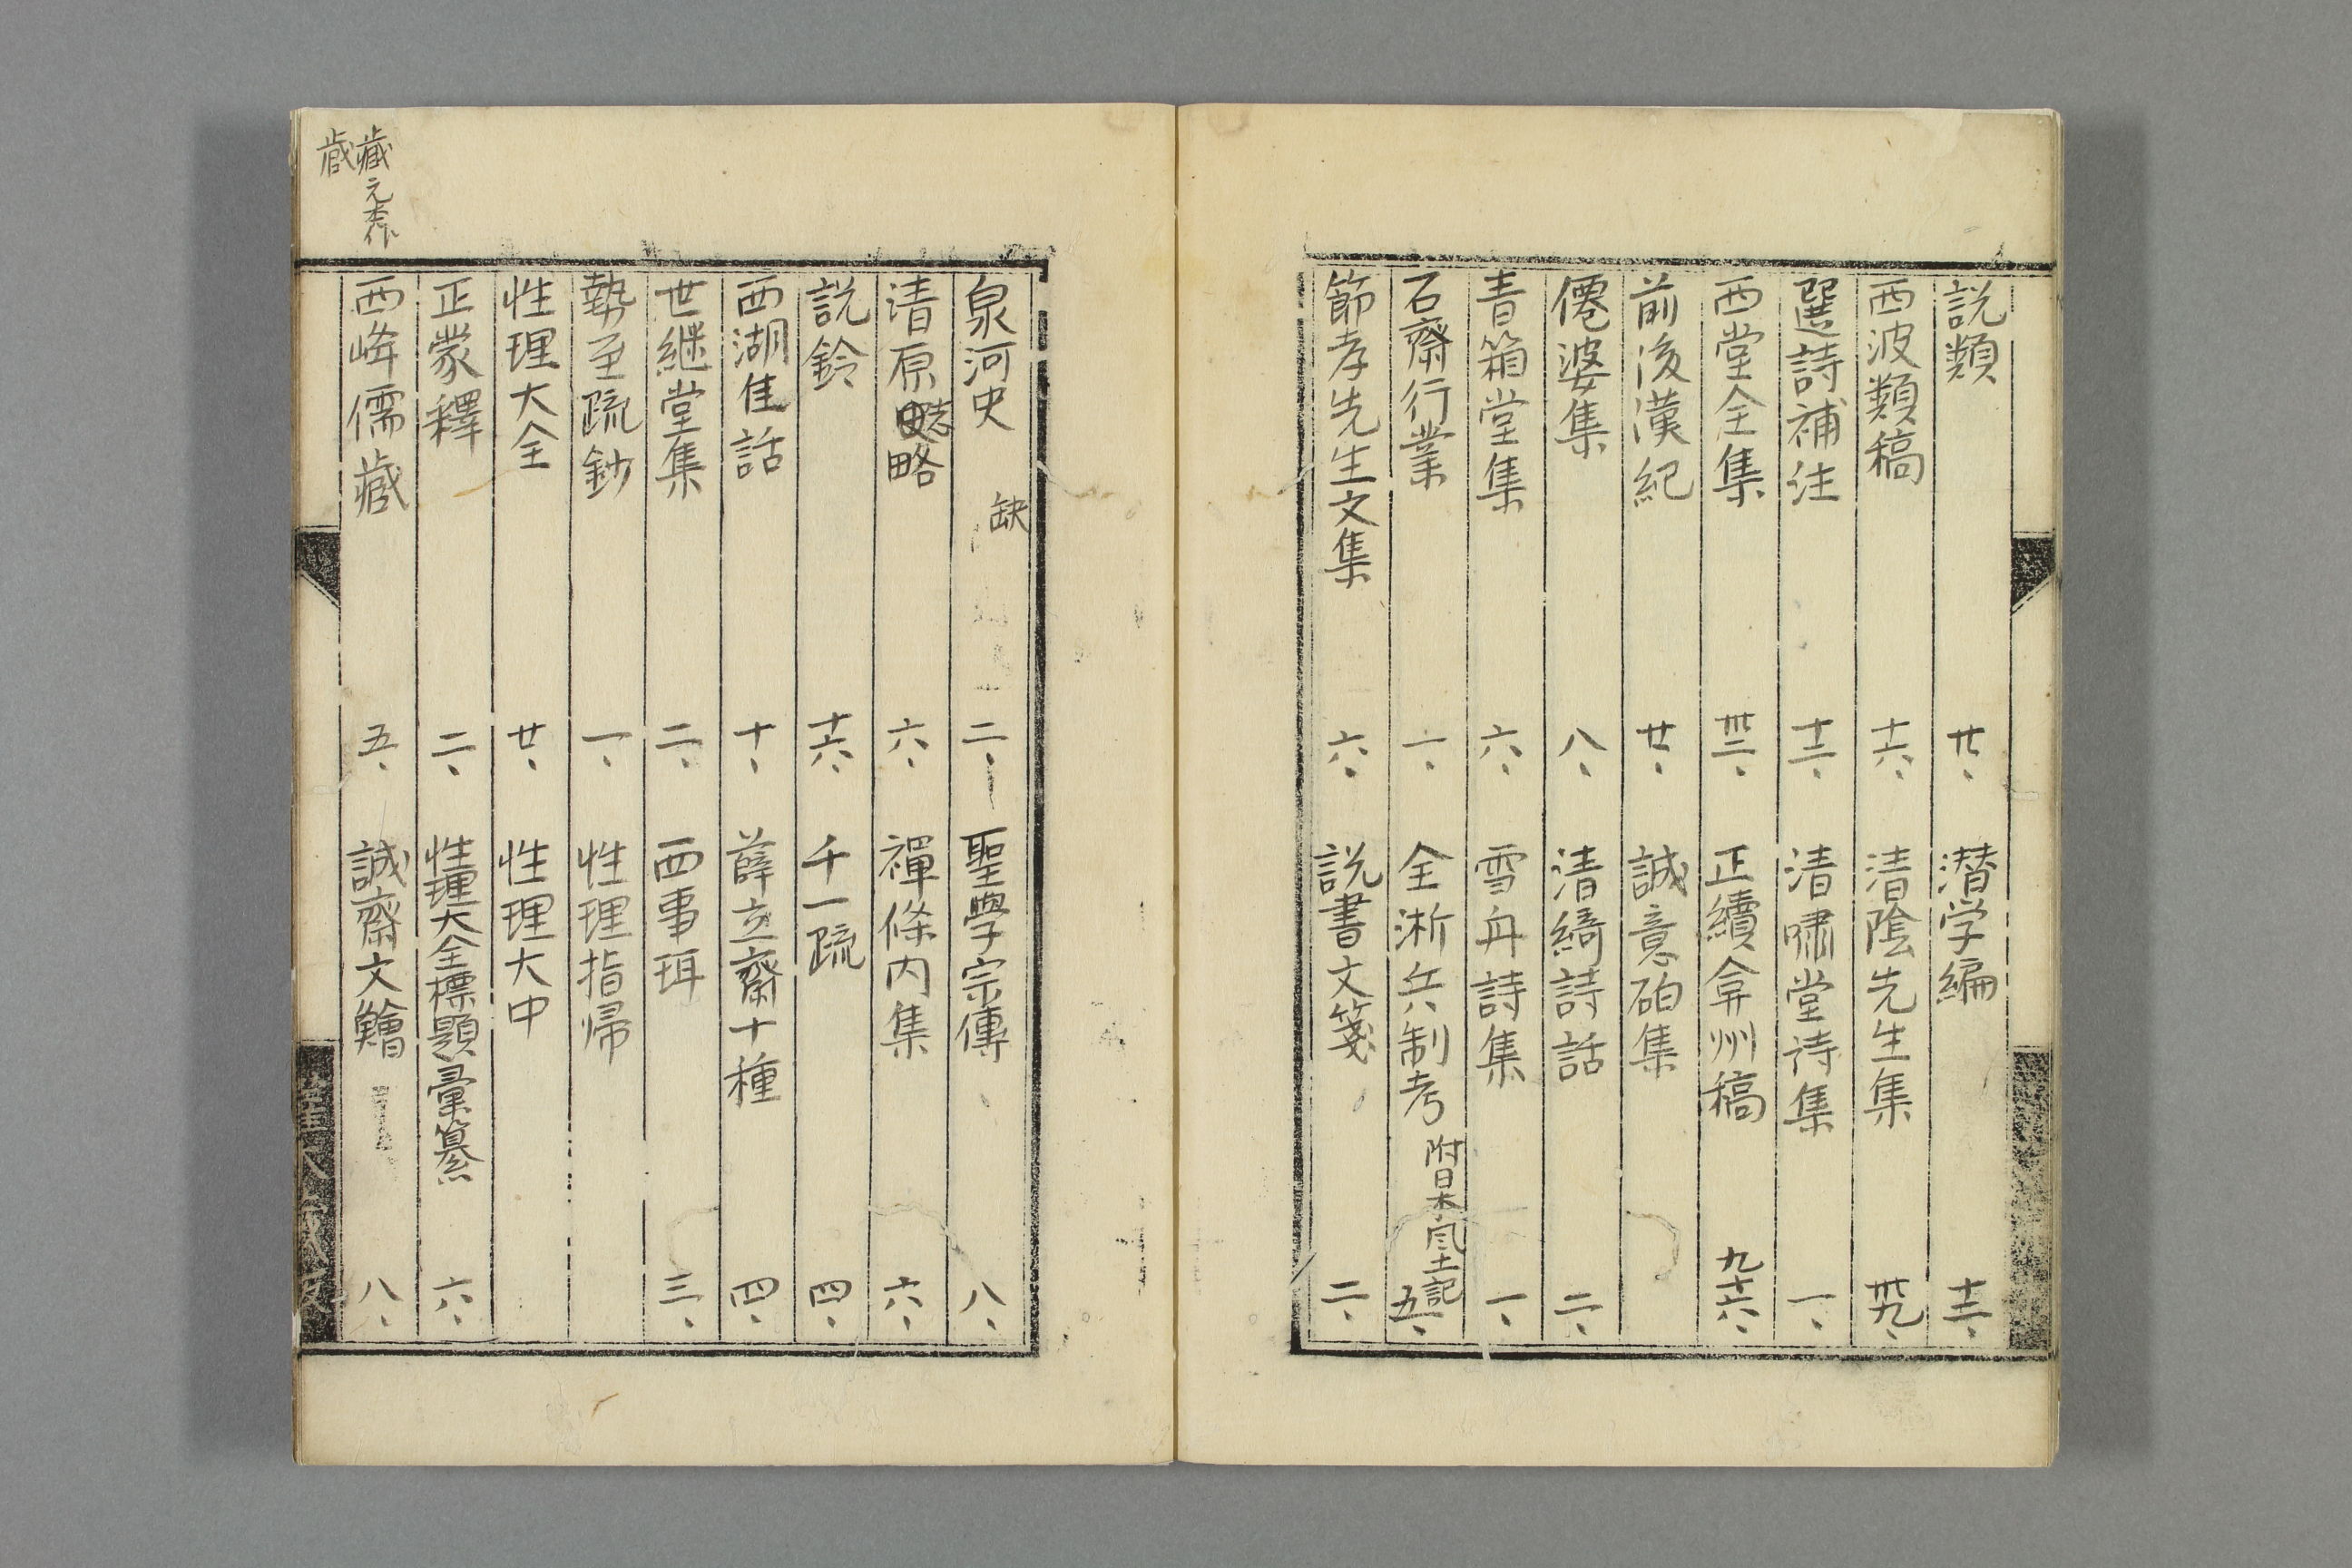 説類 廿、 潜学編 十二、
西波類稿 十六、 清陰先生集 卅九、
選詩補注 十二、 清嘯堂诗集 一、
西堂全集 卅二、 正續弇州稿 九十六、
前後漢紀 廿、 誠意硆集
僊婆集 八、 清綺詩話 二、
青箱堂集 六、 雪舟詩集 一、
石齋行業 一、 全淅兵制考 附日本風土記 五、
節孝先生文集 六、 説書文箋 二、
泉河史 缺 二、 聖學宗傳 八、
清原志略 六、 禪條内集 六、
説鈴 十六、 千一疏 四、
西湖佳話 十、 薛立齋十種 四、
世継堂集 二、 四事珥 三、
勢至疏鈔 一、 性理指帰
性理大全 廿、 性理大中
正蒙釋 二、 性理大全標題彙纂 六、
西峰儒蔵 五、 誠齋文鱠 八、
藏元本作
蔵